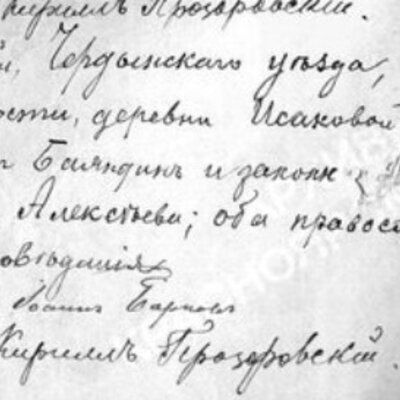 Кириллъ Прозоровскій.
й, Чердынскаго уѣзда,
ости, деревни Исаковой
ъ Баяндинъ и законн
Алексѣева; оба правосл
овѣданія
Іоаннъ
Кириллъ Прозоровскій.